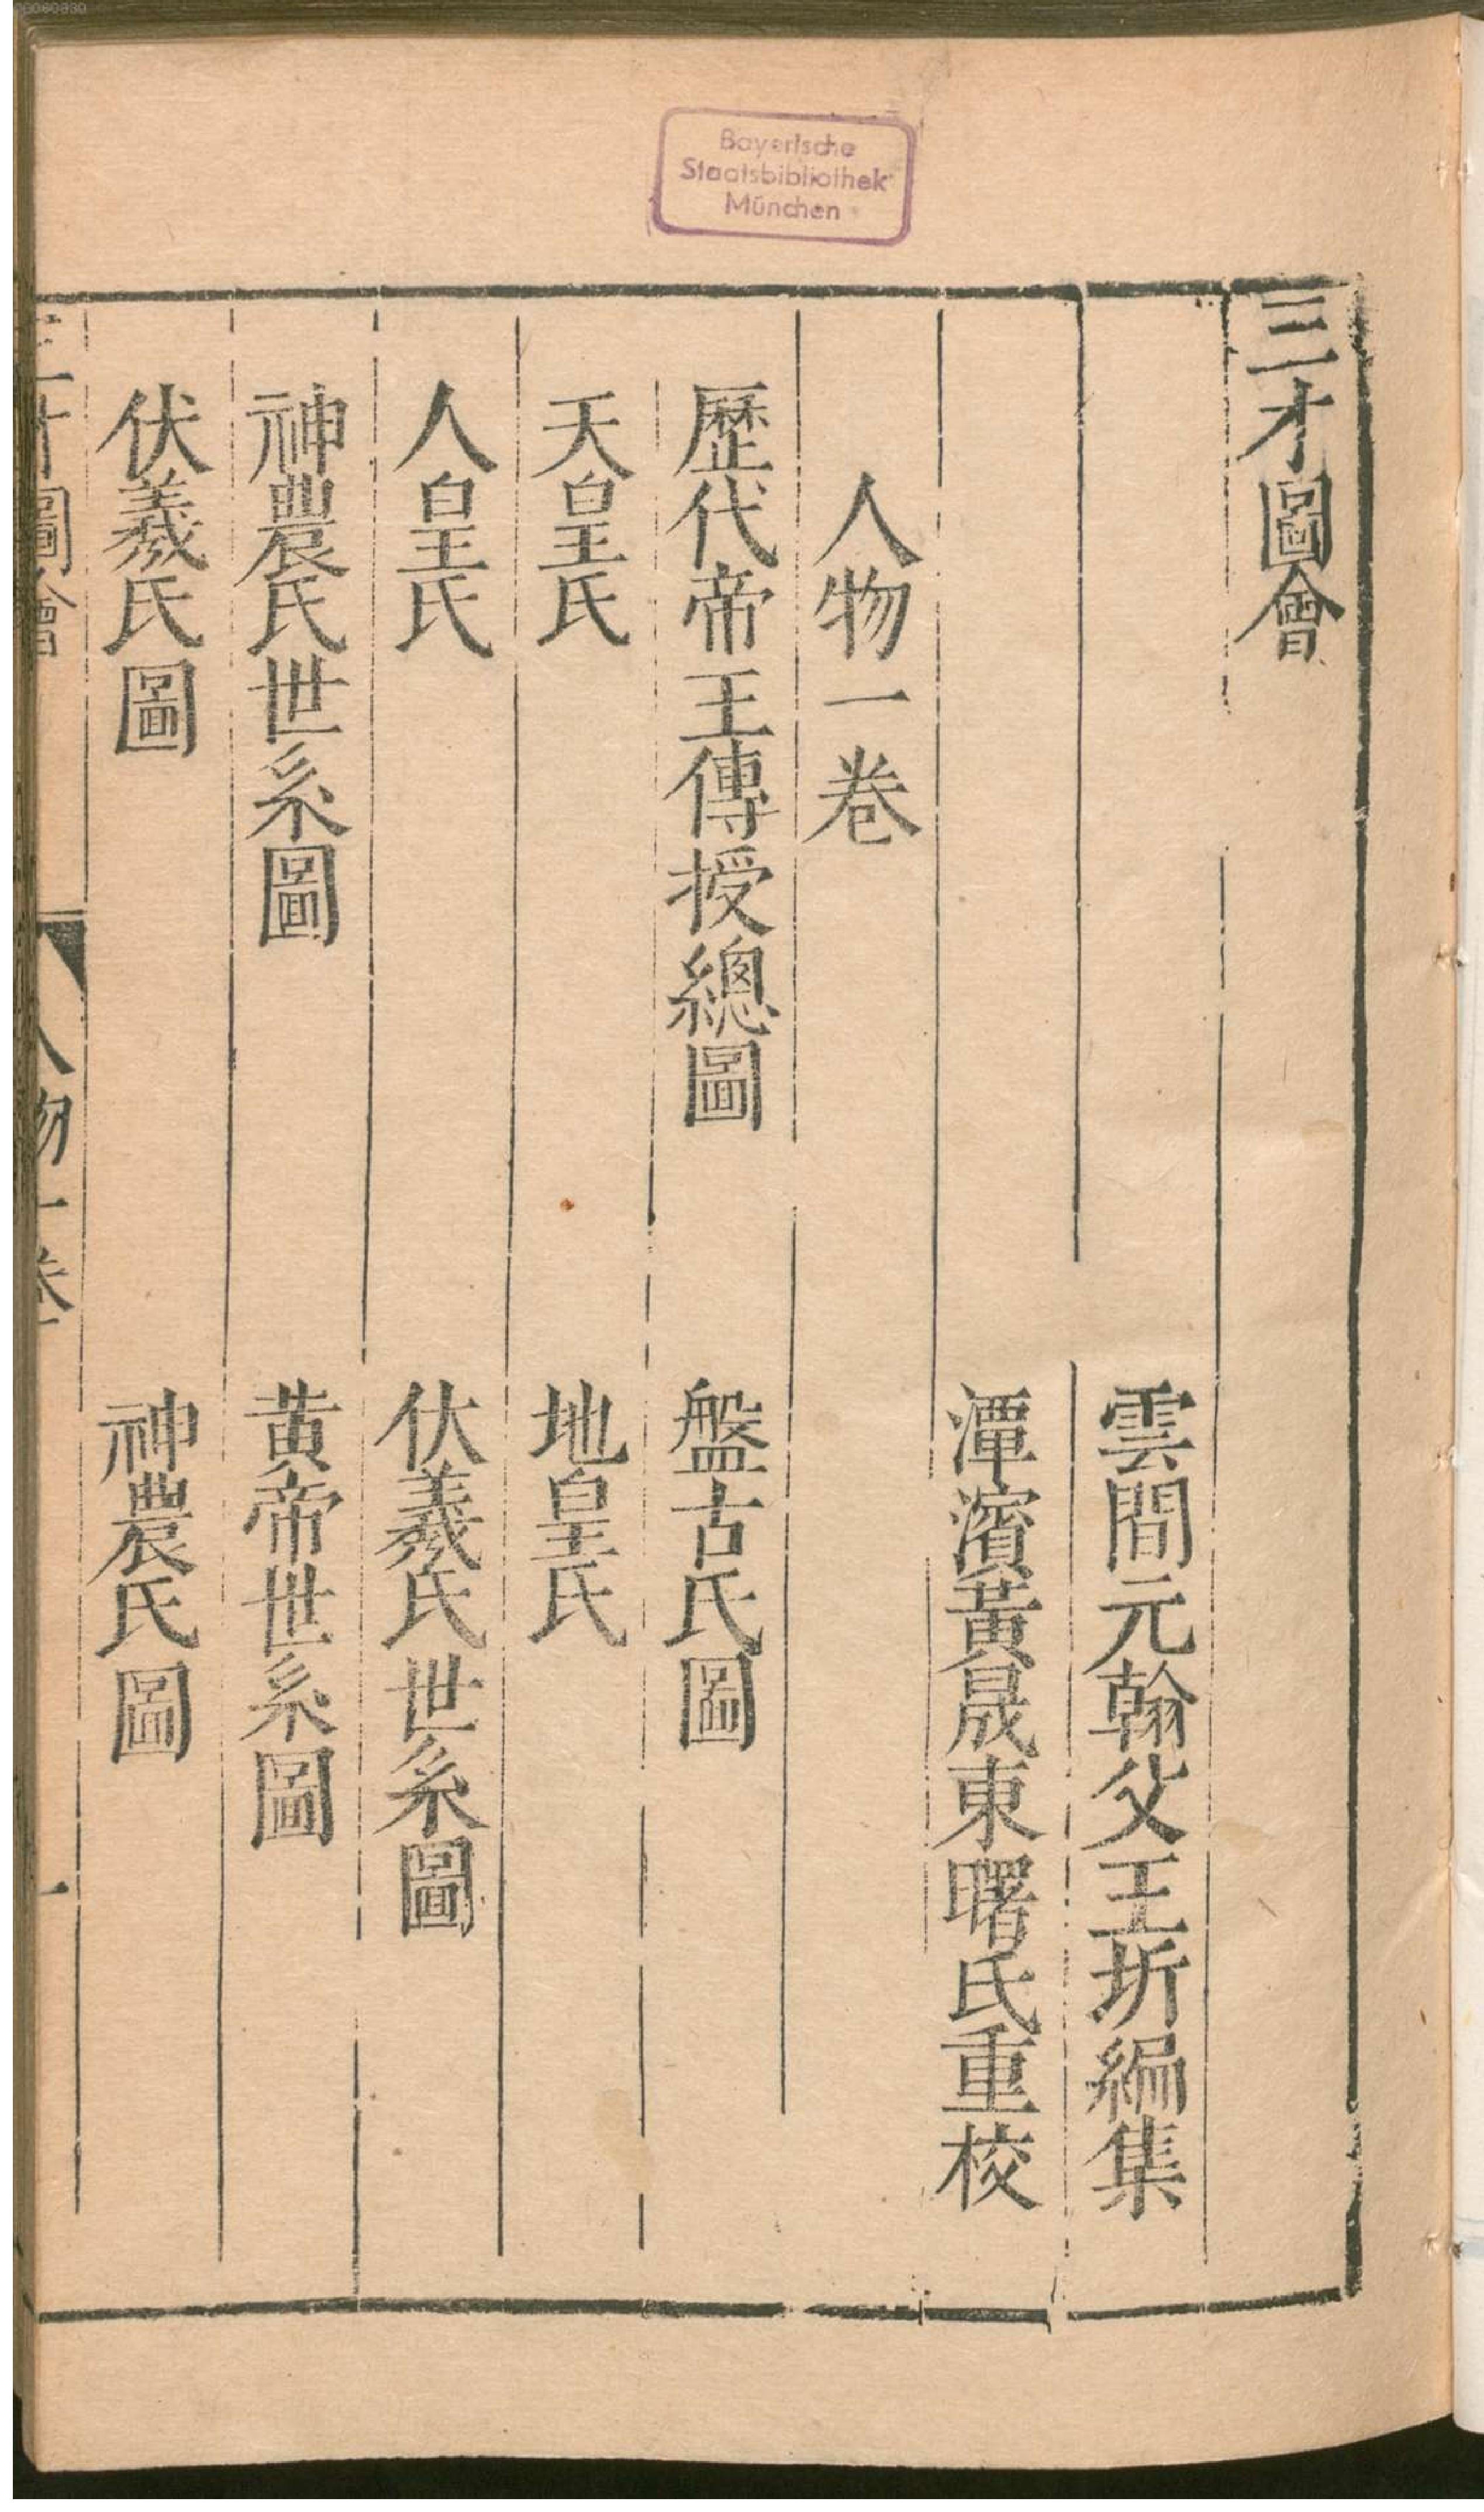 00080830
Bayerische
Staatsbibliothek
München
三才圖會
雲間元翰父王圻編集
潭濱黃晟東曙氏重校
人物一卷
歷代帝王傳授總圖
盤古氏圖
天皇氏
地皇氏
人皇氏
伏羲氏世系圖
神農氏世系圖
黃帝世系圖
伏羲氏圖
神農氏圖
三才圖會
人物一卷
一